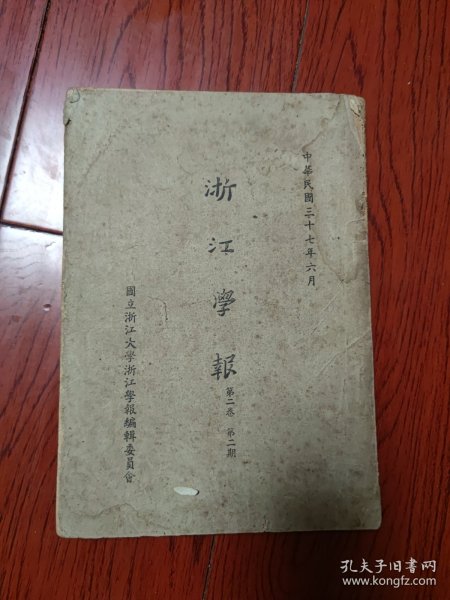 中華民國三十七年六月
浙江學報
第二卷 第二期
國立浙江大學浙江學報編輯委員會
孔夫子旧书网
www.kongfz.com